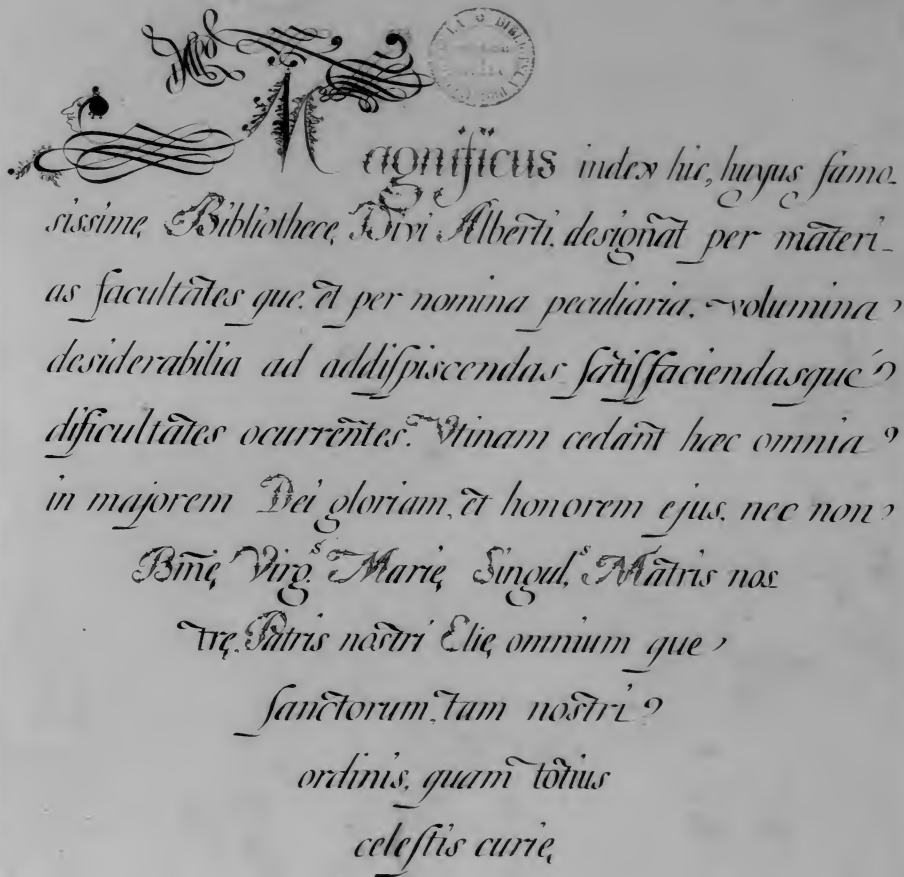 Magnificus index hic, hujus famo-
sissimę Bibliothecę Divi Alberti, designat per materi-
as facultates que, et per nomina peculiaria, volumina
desiderabilia ad addiſpiscendas ſatiſfaciendasque
dificultates ocurrentes. Vtinam cedant hæc omnia
in majorem Dei gloriam, et honorem ejus, nec non
Bm̄ę Virgˢ Marię Singulˢ Matris nos
trę, Patris nostri Elię omnium que
ſanctorum, tam nostri
ordinis, quam totius
celeſtis curię,